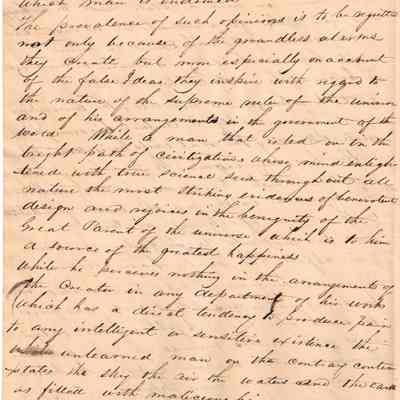 which man is endowed.
The prevalence of such opinions is to be regretted
not only because of the groundless alarms
they create but more especially on account
of the false Ideas they inspire with regard to
the nature of the supreme ruler of the universe
and of his arrangements in the government of the
world. While a man that is led on in the
bright path of civilization whose mind enligh-
tened with true science sees throughout all
nature the most striking evidences of benevolent
design and rejoices in the benignity of the
Great Parent of the universe which is to him
a source of the greatest happiness
While he perceives nothing in the arrangements of
the Creator in any department of his works
which has a direct tendency to produce pain
to any intelligent or sensitive existence the
unlearned man on the contrary contem
plates the sky the air the waters and the earth
as filled with malicious